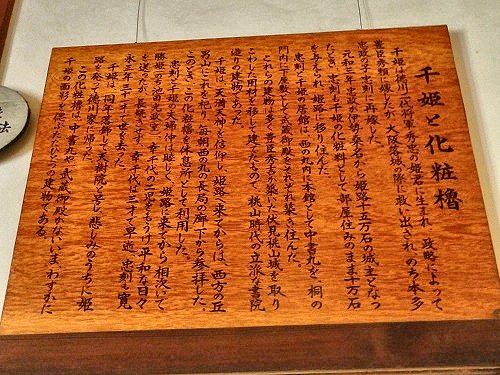 千姫と化粧櫓
千姫は徳川二代将軍秀忠の姫君に生まれ 政略によって
豊臣秀頼に嫁したが、大阪落城の際に救い出され のち本多
忠政の子忠刻に再嫁した。
元和三年忠政が伊勢桑名から姫路十五万石の城主となっ
たとき、忠刻も千姫の化粧料として部屋住みのまま十万石
をあたえられ、姫路に移り住んだ。
忠刻と千姫の居館は西の丸内に本館として中書丸を、桐の
門内に下屋敷として武蔵野御殿をそれぞれ築いて住んだ。
これらの建物の多くは豊臣秀吉が築いた伏見桃山城を取り
こわした用材を移して建てたもので、桃山時代の立派な書院
造りの建物であった。
千姫は、天満天神を信仰し、姫路へ来てからは、西方の丘
男山にこれを祀り、毎朝西の丸の長局の廊下から参拝した。
このとき、この化粧櫓を休息所として利用した。
忠刻と千姫の夫婦仲は睦じく、姫路に来てから相次いで
勝姫
幸千代の二児をもうけ平和な日々
を送ったが、長続きせず、幸千代は三才で早逝、忠刻も寛
永三年三十一才で世を去った。
千姫は、同年落飾して天樹院と号し悲しみのうちに姫
路を発って徳川家に帰った。
この化粧櫓は、中書丸や武蔵野御殿がないいま、わずかに
千姫の面影を偲ぶただひとつの建物である。
法